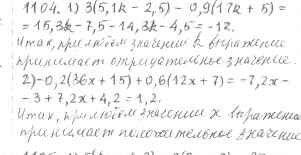 1104. 1) 3(5,1k - 2,5) - 0,9(17k + 5) =
= 15,3k - 7,5 - 14,3k - 4,5 = -12.
Итак, при любом значении k выражение
принимает отрицательное значение.
2) -0,2(36x + 15) + 0,6(12x + 7) = -7,2x -
- 3 + 7,2x + 4,2 = 1,2.
Итак, при любом значении x выражение
принимает положительное значение